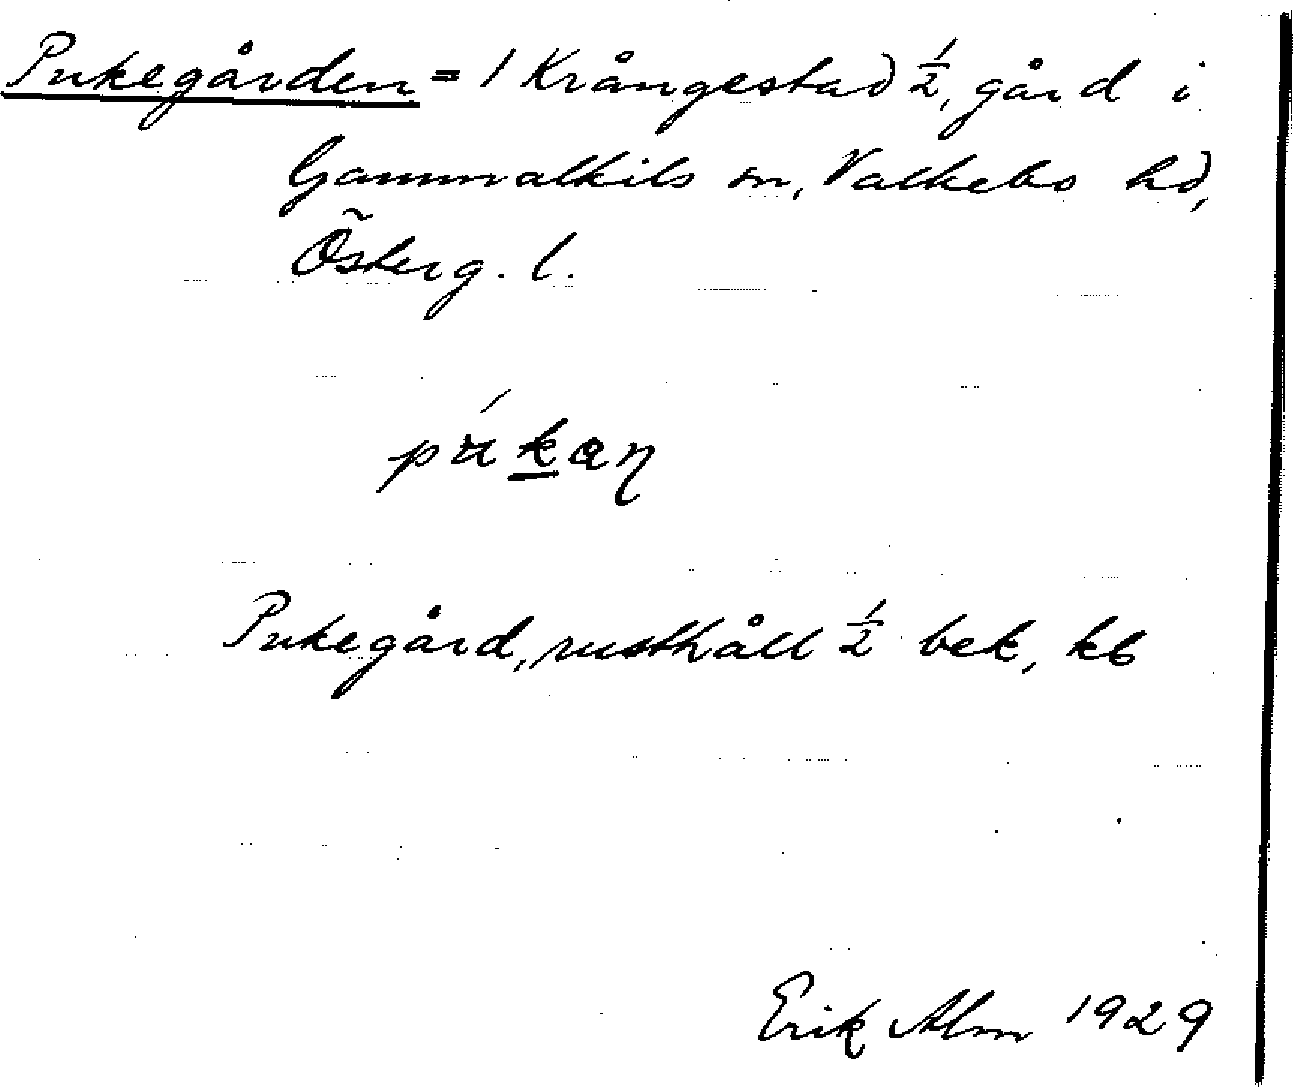 Pukegården = 1 Krångestad ½, gård i
Gammalkils sn, Valkebo hd,
Österg. l.
pu̍kaɳ
Pukegård, rusthåll ½ bek, kb
Erik Alm 1929